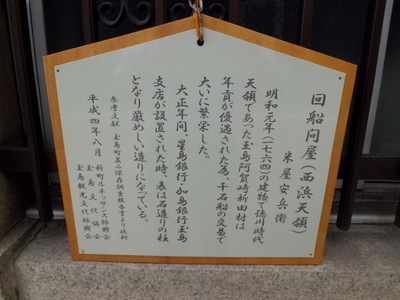 回船問屋(西浜天領)
米屋安兵衛
明和元年(一七六四)の建物で徳川時代
天領であった玉島阿賀崎新田村は
年貢が優遇された為、千石船の交易で
大いに繁栄した。
大正年間、星島銀行・加島銀行玉島
支店が設置された時、表は石造りの柱
となり厳めしい造りになっている。
参考文献 玉島町並み保存調査報告書より抜粋
平成四年八月
新町ルネッサンス振興会
玉島文化協会
玉島観光文化振興会